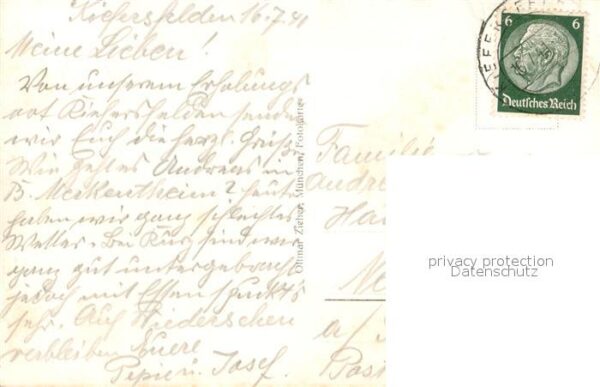 Kiefersfelden 16.7.41
Meine Lieben!
Von unserem Erholungs
ort Kiefersfelden senden
wir Euch die herzl. Grüße.
Wie geht es Andreas in
B. Merkentheim? Heute
haben wir ganz schlechtes
Wetter. Bei Kurz sind wir
ganz gut untergebracht
jedoch mit Essen spukts
sehr. Auf Wiedersehen
verbleiben Euere
Pepi u. Josef.
Ottmar Zieher, München, Fotokarte
6 6
Deutsches Reich
KIEFERSFELDEN
Familie
Andre
Ha
a/
privacy protection
Datenschutz